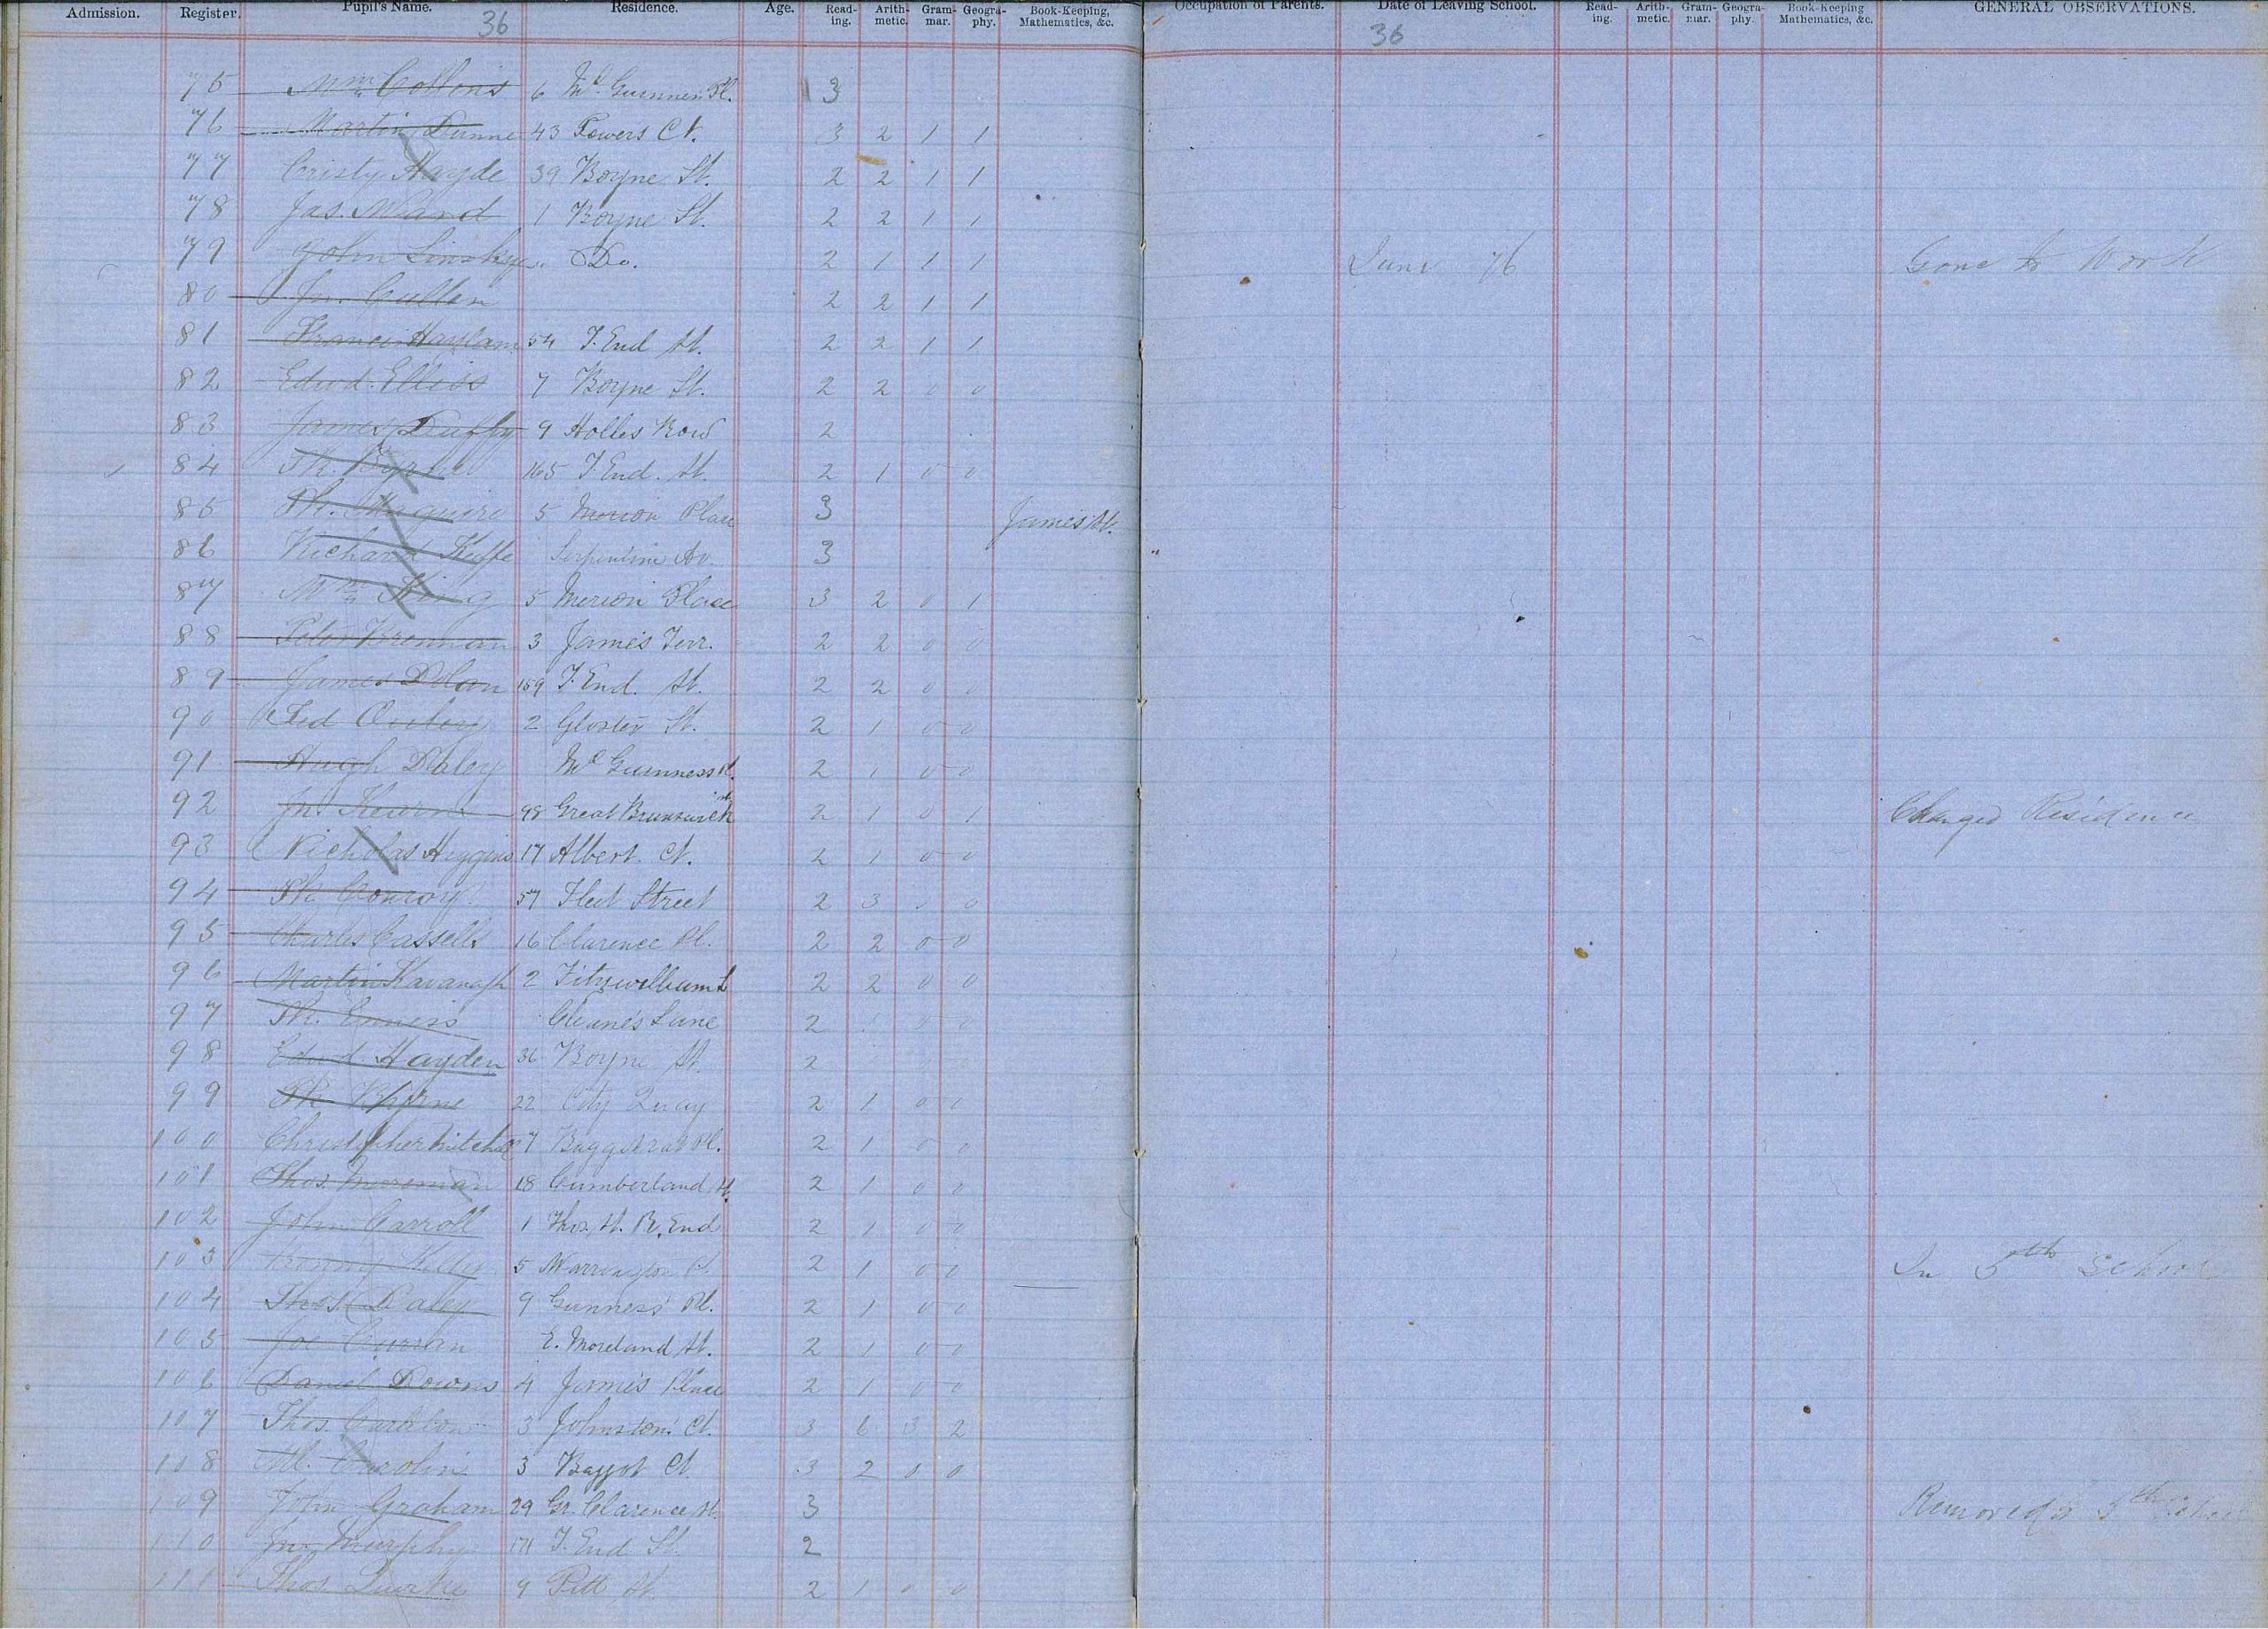 Admission. Register. Pupil's Name. Residence. Age. Read-ing. Arith-metic. Gram-mar. Geogra-phy. Book-Keeping, Mathematics, &c. Occupation of Parents. Date of Leaving School. Read-ing. Arith-metic. Gram-mar. Geogra-phy. Book-Keeping Mathematics, &c. GENERAL OBSERVATIONS.
36 36
75 Wm Collins 6 Mc Guinness Pl. 3
76 Martin Dunne 43 Powers Ct. 3 2 1 1
77 Cristy Hayde 39 Boyne St. 2 2 1 1
78 Jas. Ward 1 Boyne St. 2 2 1 1
79 John Linskey Do. 2 1 1 1 June 76 Gone to Work
80 Jn. Cullen 2 2 1 1
81 Francis 54 T. End St. 2 2 1 1
82 Edwd. Elliss 7 Boyne St. 2 2 0 0
83 James Duffy 9 Holles Row 2
84 Th. Byrne 165 T. End. St. 2 1 0 0
85 Th. Maguire 5 Merion Place 3 James St.
86 Richard Keffe Serpentine Av. 3
87 Wm King 5 Merion Place 3 2 0 1
88 Peter Brennan 3 James Terr. 2 2 0 0
89 James Dolan 159 T. End. St. 2 2 0 0
90 2 Gloster St. 2 1 0 0
91 Hugh Daley Mc Guinness Pl. 2 1 0 0
92 Jn. 98 Great Brunswick st 2 1 0 1 Changed Residence
93 Nicholas Higgins 17 Albert Ct. 2 1 0 0
94 Th. Conroy 57 Fleet Street 2 3 0
95 Charles Cassells 16 Clarence Pl. 2 2 0 0
96 Martin Kavanagh 2 Fitzwilliam 2 2 0 0
97 Th. Ennis Lane 2 0 0
98 Edwd Hayden 36 Boyne St. 2
99 Th. Byrne 22 City Quay 2 1 0 0
100 Christopher Mitchel 7 Baggotrat Pl. 2 1 0 0
101 Thos. 18 Cumberland St. 2 1 0 0
102 John Carroll 1 Thos. St. R. End 2 1 0 0
103 Kelly 5 Warrington Pl 2 1 0 0 In 5th School
104 Thos. Daley 9 Guinness' Pl. 2 1 0 0
105 Joe Curran E. Moreland St. 2 1 0 0
106 Daniel Downs 4 James Place 2 1 0 0
107 Thos. 3 Johnston's Ct. 3 6 3 2
108 Ml. Carolin 3 Baggot Ct. 3 2 0 0
109 John Graham 29 Gr. Clarence St. 3 Removed to 5th School
110 Jn. Murphy 171 T. End St. 2
111 Thos. 9 Pitt St. 2 1 0 0